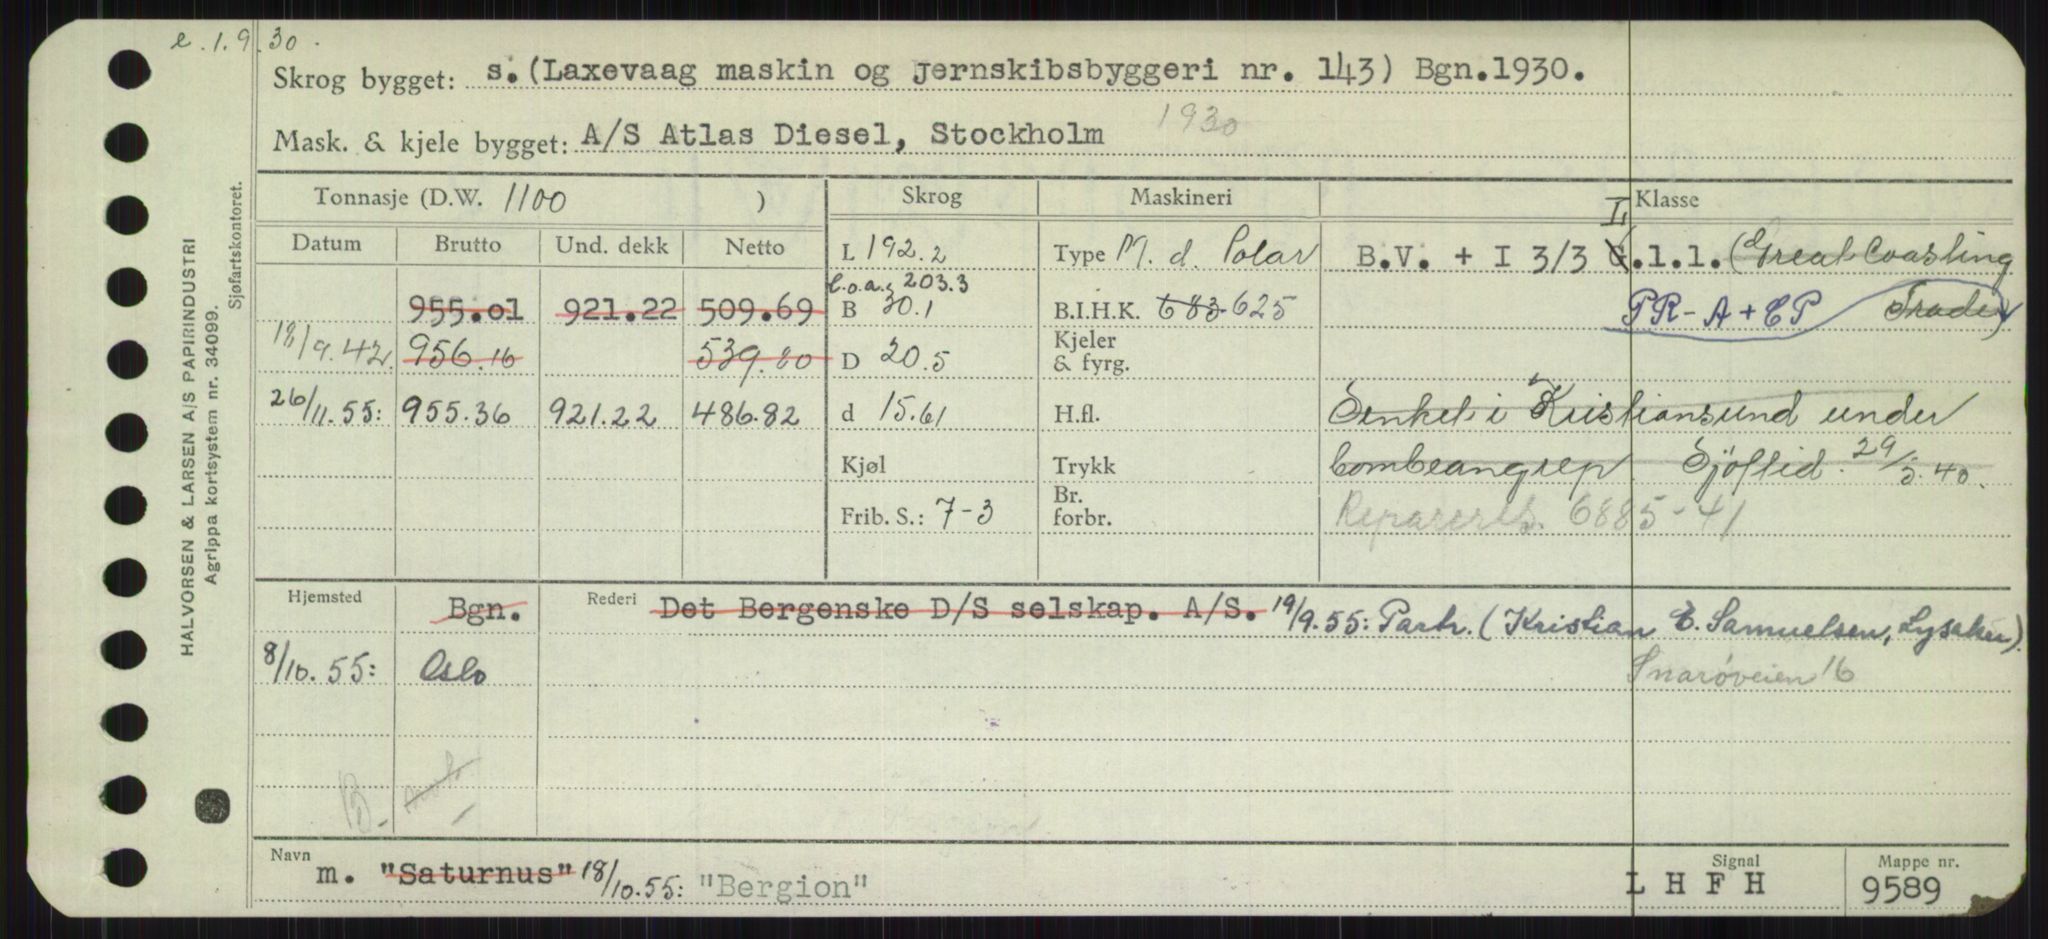 e. 1.9.30.
Skrog bygget: s. (Laxevaag maskin og jernskibsbyggeri nr. 143) Bgn.1930.
Mask. & kjele bygget: A/S Atlas Diesel, Stockholm 1930
Tonnasje (D.W. 1100 ) Skrog Maskineri Klasse
Datum Brutto Und. dekk Netto L 192.2 Type M. d. Polar B.V. + I 3/3 G L.1.1. (Great Coasting
l.o.a. 203.3
955.01 921.22 509.69 B 30.1 B.I.H.K. 683 625 PR-A+CP Trade)
18/9.42 956.16 539.80 D 20.5 Kjeler & fyrg.
26/11.55: 955.36 921.22 486.82 d 15.61 H.fl. Senket i Kristiansund under
Kjøl Trykk bombeangrep Sjöftid. 29/5.40.
Frib. S.: 7-3 Br. forbr. Reparert 6885-41
Hjemsted Bgn. Rederi Det Bergenske D/S selskap. A/S. 19/9.55: Partr. (Kristian E. Samuelsen, Lysaker).
8/10.55: Oslo Snarøveien 16
B.
Navn m. "Saturnus" 18/10.55: "Bergion" Signal L H F H Mappe nr. 9589
HALVORSEN & LARSEN A/S PAPIRINDUSTRI
Agrippa kortsystem nr. 34099.
Sjøfartskontoret.